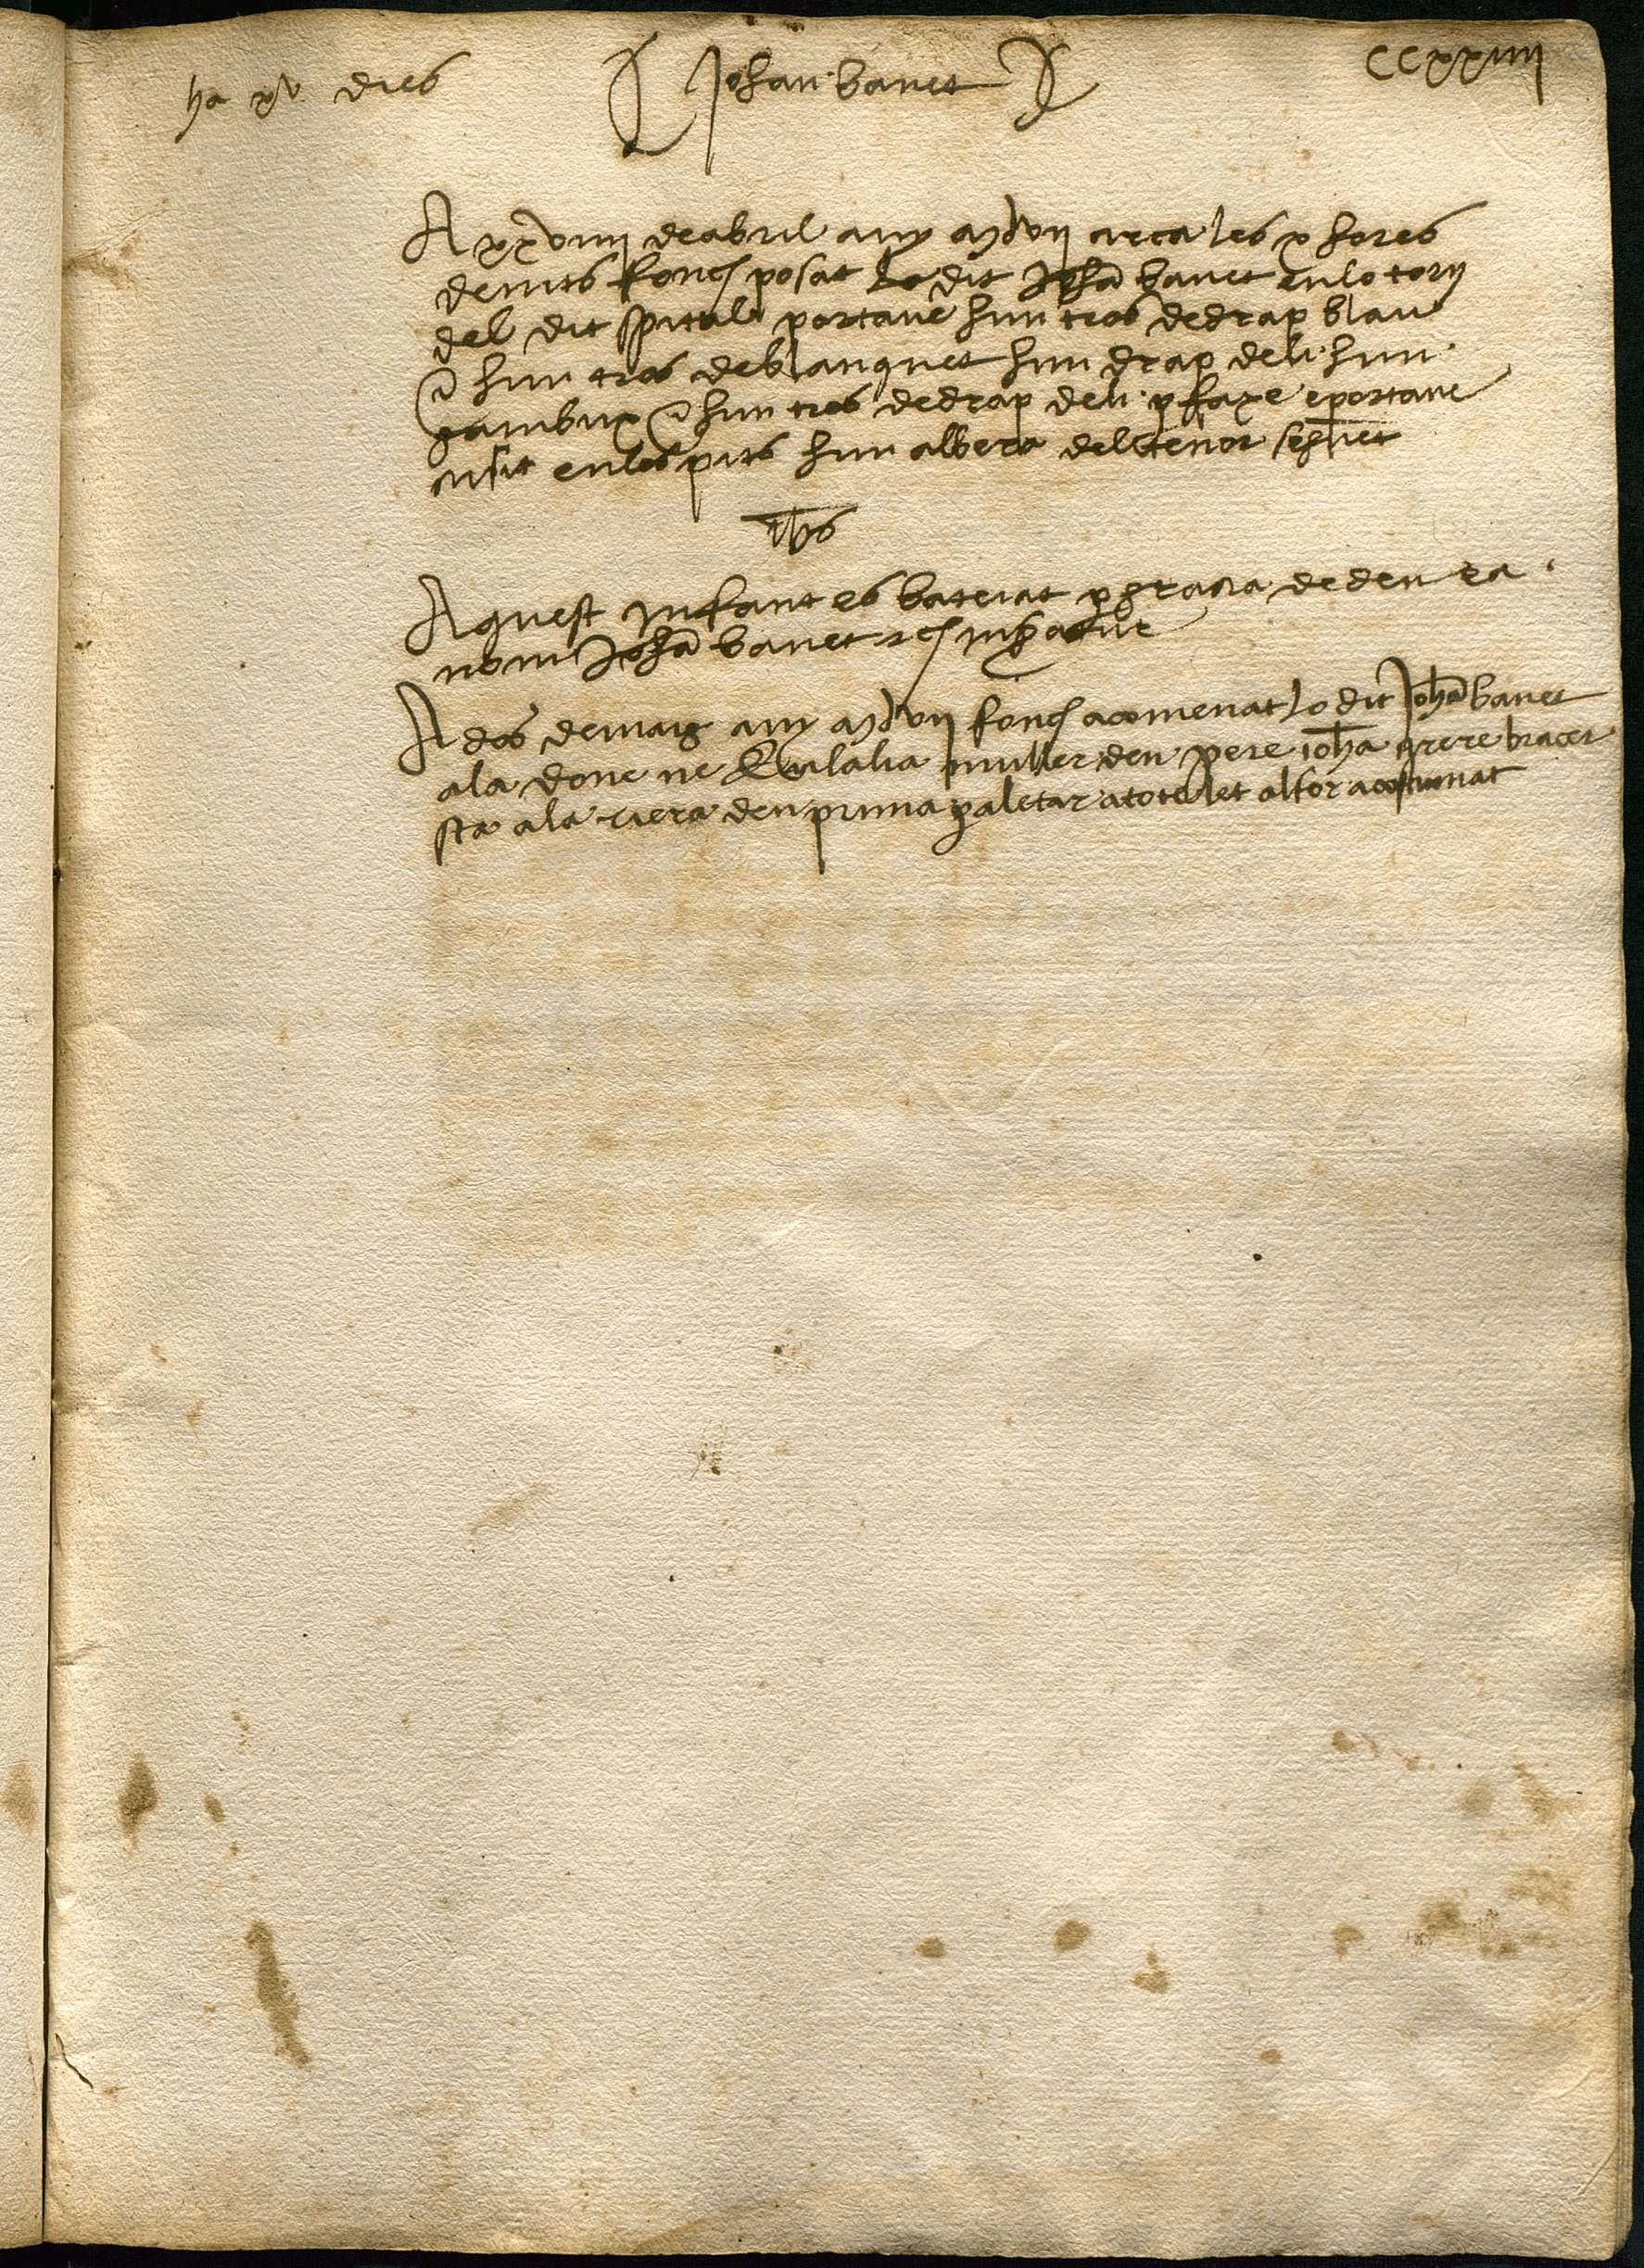 ha xv dies
Johan banet
CCxxiiii
A xxviiii de abril any mdvii circa les x hores
de nits fonch posat lo dit Johã banet en lo torn
del dit spital portave hun tros de drap blau
e hun tros de blanquet hun drap de li hun
gambux e hun tros de drap de li p faxe e portave
cusit en los pits hun albera del tenor seguẽt
ihs
Aquest infant es bateiat p gracia de deu ea
nom Johã banet
A dos de maig any mdvii fonch acomenat lo dit Johã banet
a la done ne Eulalia muller den pere johã grere bracer
sta a la riera den prima a tot let